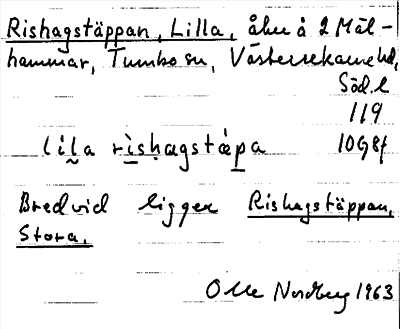 Rishagstäppan, Lilla, åker å 2 Mäl-
hammar, Tumbo sn, Västerrekarne hd,
Söd.l
119
lila rishagstäpa 10G8f
Bredvid ligger Rishagstäppan,
Stora.
Olle Nordberg 1963